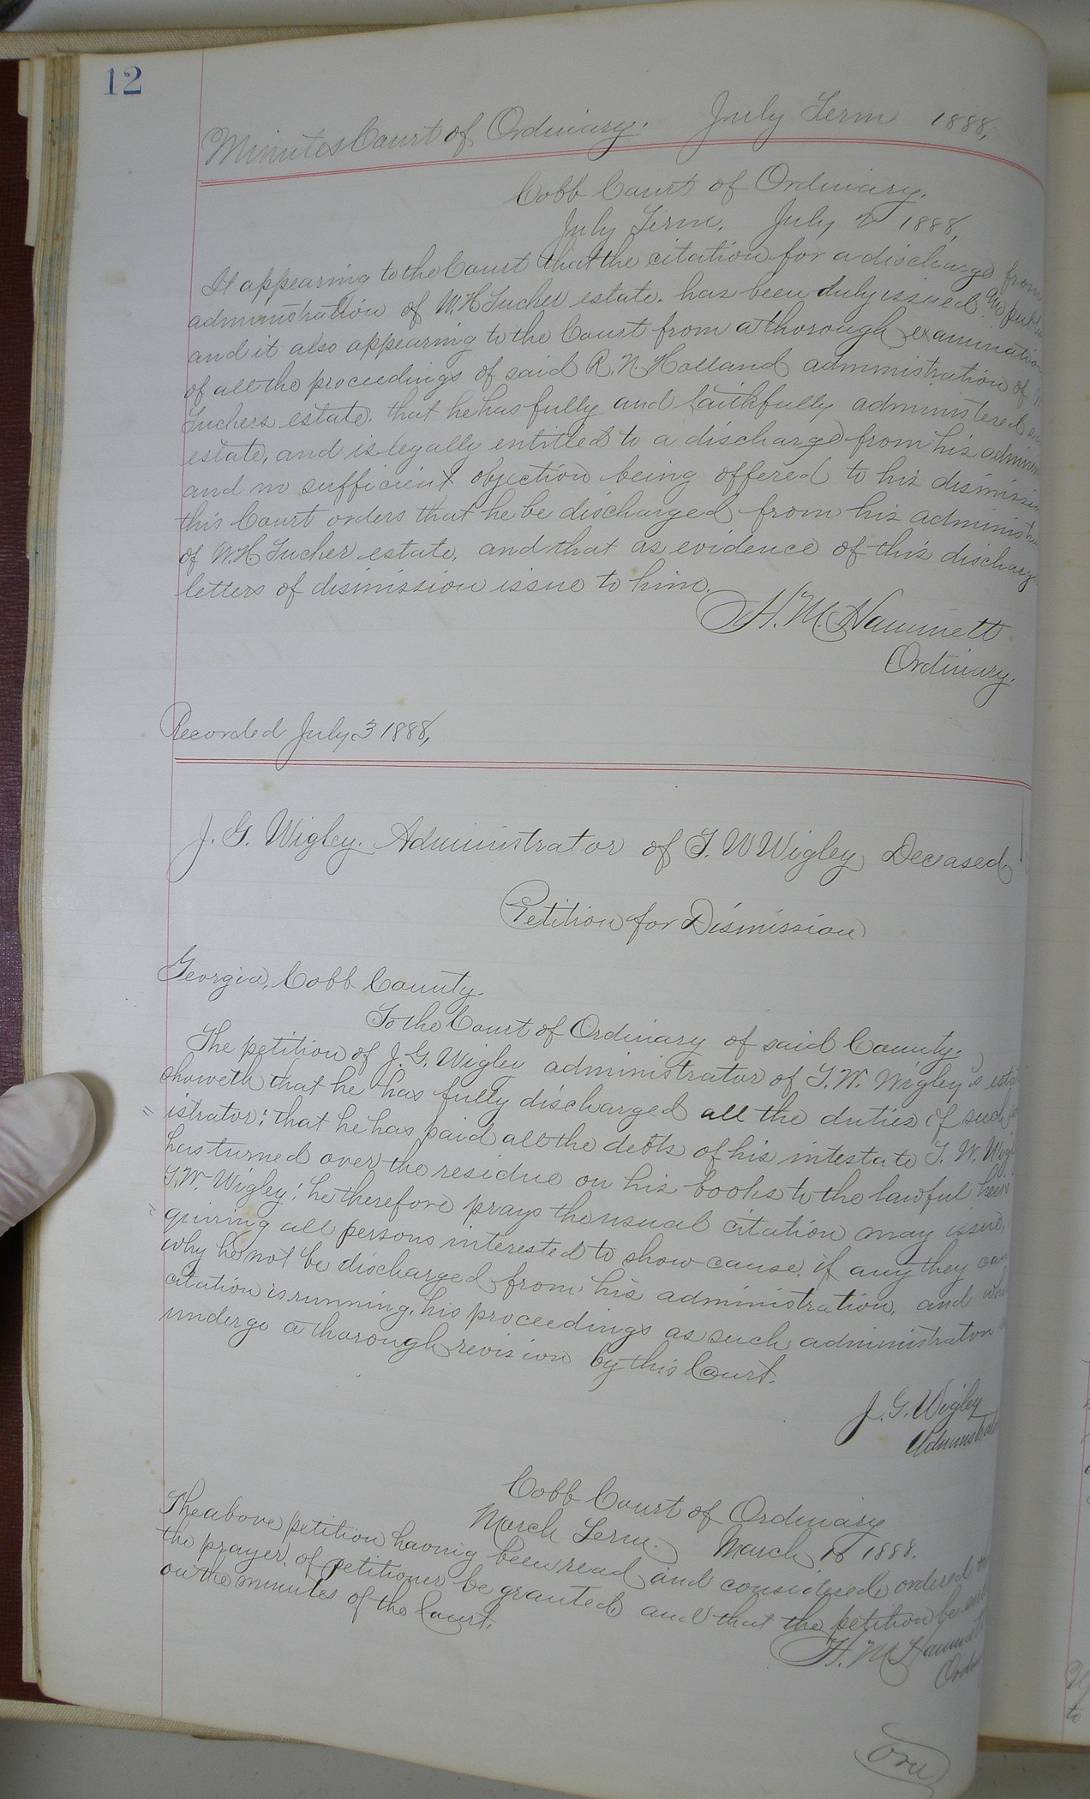 12
Minutes Court of Ordinary. July Term 1888,
Cobb Court of Ordinary.
July Term. July 2d 1888,
It appearing to the Court that the citation for a discharge from
administration of W.H. Tucher estate. has been duly issued
and it also appearing to the Court from a thorough examination
of all the proceedings of said R. N. Holland administration of
Tuchers estate. that he has fully and faithfully administered
estate, and is legally entitled to a discharge from his
and no sufficient objection being offered to his
this Court orders that he be discharged from his
of W.H. Tucher estate, and that as evidence of this
letters of dismission issue to him.
H. M. Hammett
Ordinary.
Recorded July 3 1888,
J. G. Wigley. Administrator of T. W Wigley Deceased
Petition for Dismission
Georgia, Cobb County.
To the Court of Ordinary of said County.
The petition of J. G. Wigley administrator of T. W. Wigley's
showeth that he has fully discharged all the duties of such
istrator; that he has paid all the debts of his intestate T. W.
has turned over the residue on his books to the lawful
T.W. Wigley; he therefore prays the usual citation may issue,
quiring all persons interested to show cause, if any they can
why he not be discharged from his administration, and
citation is running, his proceedings as such administrator
undergo a thorough revision by this Court.
J. G. Wigley
Cobb Court of Ordinary
March Term. March 1888.
The above petition having been read and considered ordered
the prayer of petitioner be granted and that the petition be
on the minutes of the Court.
H. M.
over